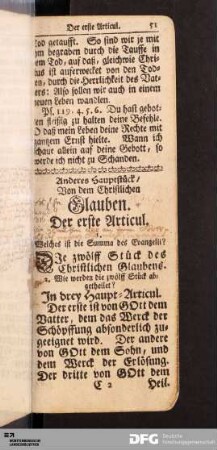 Der erste Articul. 51
Tod getaufft. So sind wir je mit
ihm begraben durch die Tauffe in
dem Tod, auf daß, gleichwie Chri-
stus ist auferwecket von den Tod-
ten, durch die Herrlichkeit des Vat-
ters: Also sollen wir auch in einem
neuen Leben wandlen.
Ps. 119. 4. 5. 6. Du hast gebot-
ten fleißig zu halten deine Befehle.
O daß mein Leben deine Rechte mit
gantzem Ernst hielte. Wann ich
schaue allein auf deine Gebott, so
werde ich nicht zu Schanden.
Anderes Hauptstück/
Von dem Christlichen
Glauben.
Der erste Articul.
1.
Welches ist die Summa des Evangelii?
Die zwölff Stück des
Christlichen Glaubens.
2. Wie werden die zwölff Stück ab-
getheilet?
In drey Haupt-Articul.
Der erste ist von GOtt dem
Vatter, dem das Werck der
Schöpffung absonderlich zu-
geeignet wird. Der andere
von GOtt dem Sohn, und
dem Werck der Erlösung.
Der dritte von GOtt dem
C 2 Heil.
DFG Deutsche
Forschungsgemeinschaft